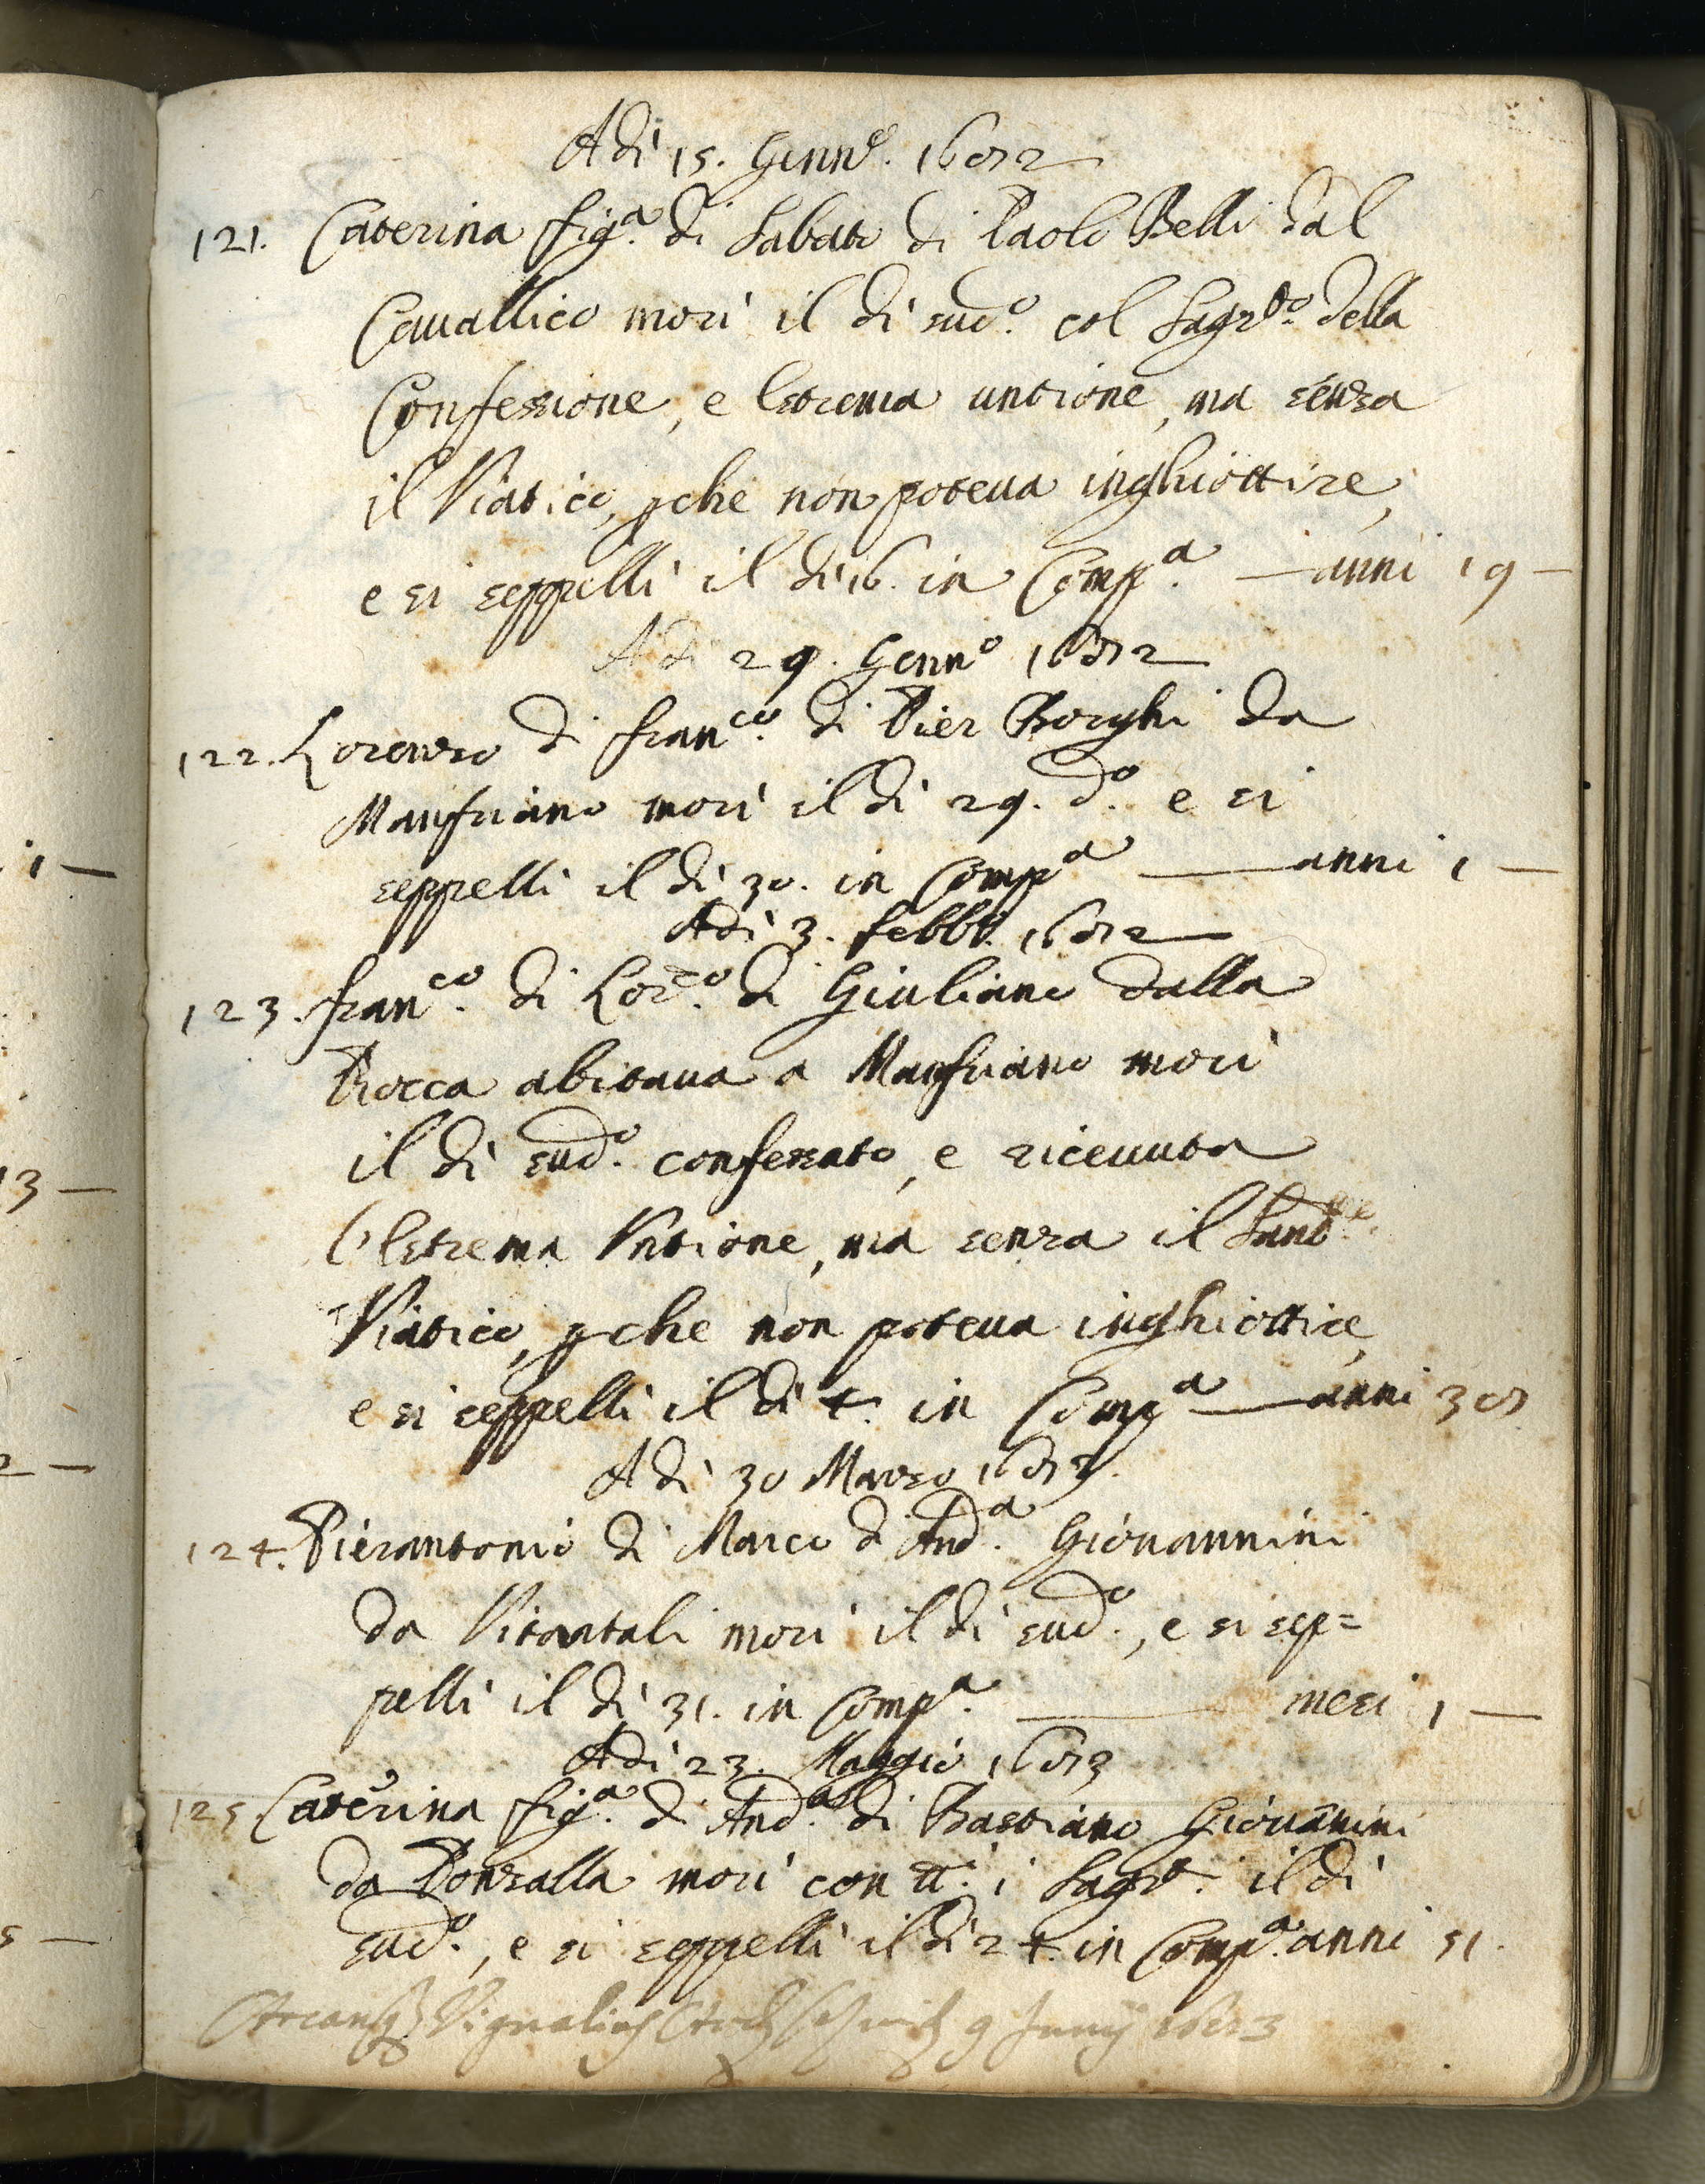 Adi 15. Genn.º 1682
121. Caterina fig.ª di Sabato di Paolo Belli dal
Cavallico morì il dì sud.º col Sagr.to della
Confessione, e lestrema untione, ma senza
il Viatico, pche non poteva inghiottire,
e si seppellì il dì 16. in Comp.ª — anni 19 —
Adi 29. Genn.º 1682
122. Lorenzo di Fran.co di Pier Borghi da
Manfriano morì il dì 29. d.º e si
seppellì il dì 30. in Comp.ª — anni 1 —
Adi 3. febb.º 1682
123. Fran.co di Lor.co di Giuliano dalla
Rocca abitava a Manfriano morì
il dì sud.º confessato, e ricevuta
l'Estrema Untione, ma senza il
Viatico, pche non poteva inghiottire,
e si seppellì il dì 4. in Comp.ª — anni 38
Adi 30 Marzo 1682.
124. Pierantonio di Marco d'And.ª Giovannini
da Vitartali morì il dì sud.º, e si sep=
pellì il dì 31. in Comp.ª — mesi 1 —
Adi 23. Maggio 1683
125. Caterina fig.ª di And.ª di Bastiano Giovānini
da Ronzalla morì con tt.i i Sagr.ti il dì
sud.º, e si seppellì il dì 24. in Comp.ª anni 51.
9 Junij 1683
1 —
13 —
2 —
5 —